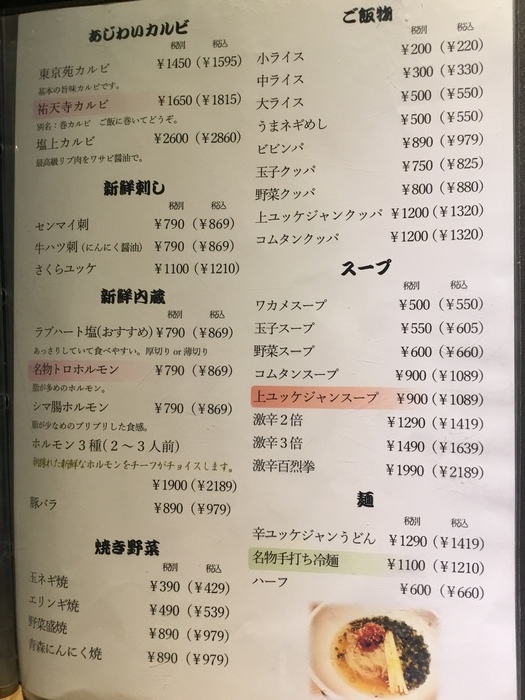 あじわいカルビ
税別 税込
東京苑カルビ ¥1450（¥1595）
基本の旨味カルビです。
祐天寺カルビ ¥1650（¥1815）
別名：巻カルビ ご飯に巻いてどうぞ。
塩上カルビ ¥2600（¥2860）
最高級リブ肉をワサビ醤油で。
新鮮刺し
税別 税込
センマイ刺 ¥790（¥869）
牛ハツ刺（にんにく醤油） ¥790（¥869）
さくらユッケ ¥1100（¥1210）
新鮮内蔵
税別 税込
ラブハート塩(おすすめ) ¥790（¥869）
あっさりしていて食べやすい。厚切り or 薄切り
名物トロホルモン ¥790（¥869）
脂が多めのホルモン。
シマ腸ホルモン ¥790（¥869）
脂が少なめのプリプリした食感。
ホルモン３種(２〜３人前)
朝採れた新鮮なホルモンをチーフがチョイスします。
¥1900（¥2189）
豚バラ ¥890（¥979）
焼き野菜
税別 税込
玉ネギ焼 ¥390（¥429）
エリンギ焼 ¥490（¥539）
野菜盛焼 ¥890（¥979）
青森にんにく焼 ¥890（¥979）
ご飯物
税別 税込
小ライス ¥200（¥220）
中ライス ¥300（¥330）
大ライス ¥500（¥550）
うまネギめし ¥500（¥550）
ビビンバ ¥890（¥979）
玉子クッパ ¥750（¥825）
野菜クッパ ¥800（¥880）
上ユッケジャンクッパ ¥1200（¥1320）
コムタンクッパ ¥1200（¥1320）
スープ
税別 税込
ワカメスープ ¥500（¥550）
玉子スープ ¥550（¥605）
野菜スープ ¥600（¥660）
コムタンスープ ¥900（¥1089）
上ユッケジャンスープ ¥900（¥1089）
激辛２倍 ¥1290（¥1419）
激辛３倍 ¥1490（¥1639）
激辛百烈拳 ¥1990（¥2189）
麺
税別 税込
辛ユッケジャンうどん ¥1290（¥1419）
名物手打ち冷麺 ¥1100（¥1210）
ハーフ ¥600（¥660）